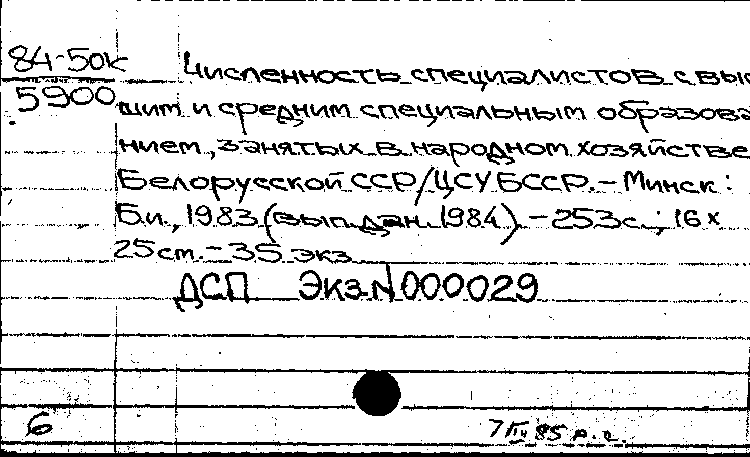 84-50к
5900
Численность специалистов с выс
шим и средним специальным образова
нием, занятых в народном хозяйстве
Белорусской ССР/ЦСУ БССР. – Минск:
Б.и., 1983 (вып. дан. 1984). – 253с.; 16 x
25 ст. – 35 экз
ДСП Экз N 000029
6
85